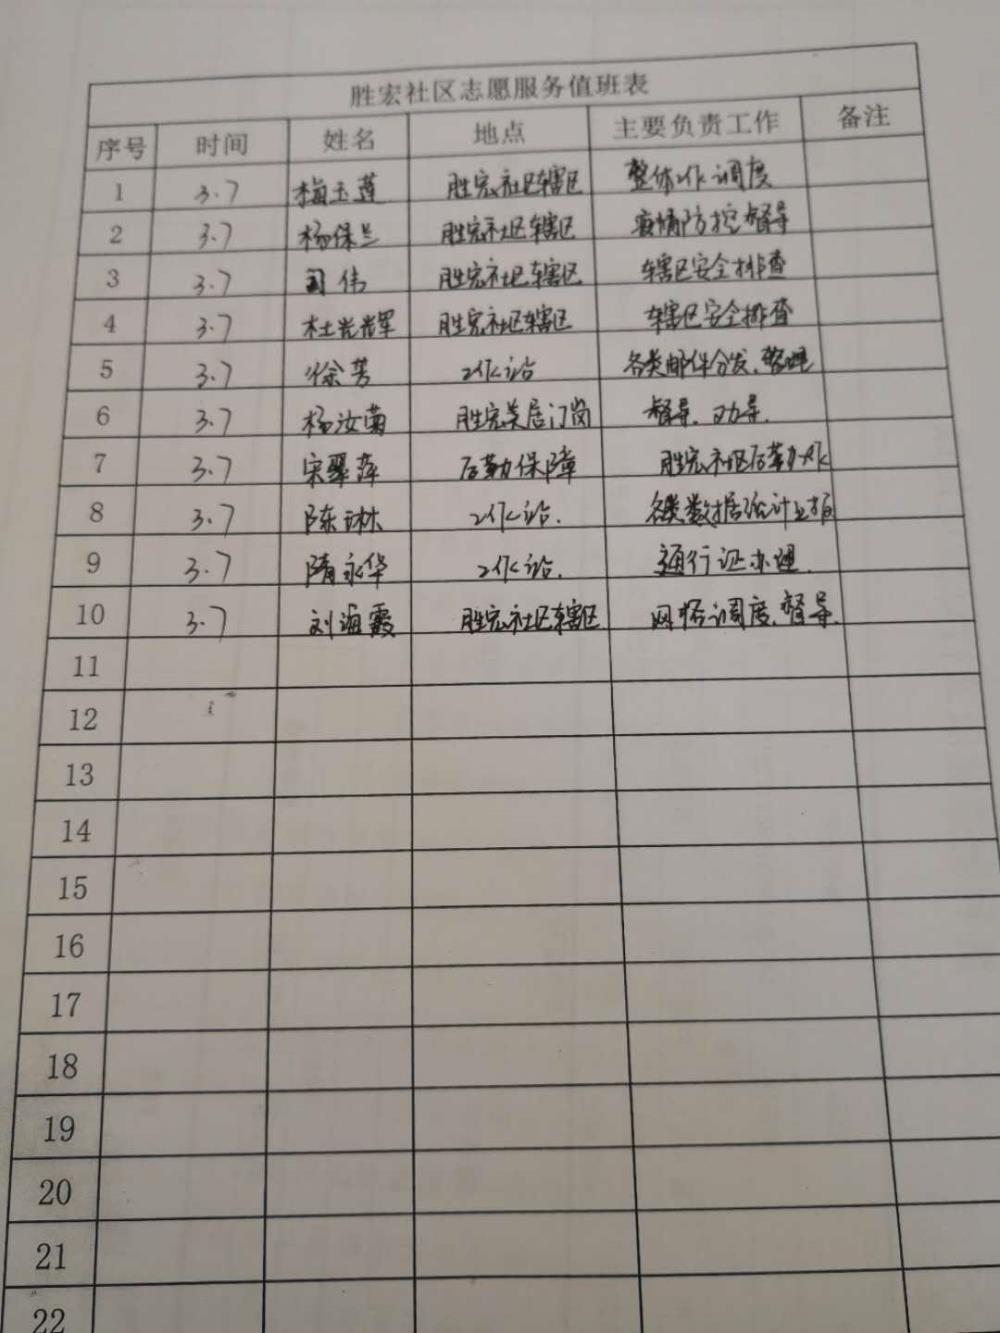 胜宏社区志愿服务值班表
序号 时间 姓名 地点 主要负责工作 备注
1 3.7 梅玉莲 胜宏社区辖区 整体工作调度
2 3.7 杨保兰 胜宏社区辖区 疫情防控督导
3 3.7 司伟 胜宏社区辖区 辖区安全排查
4 3.7 杜光辉 胜宏社区辖区 辖区安全排查
5 3.7 徐芳 工作站 各类邮件分发、整理
6 3.7 杨汝菊 胜宏美居门岗 督导、劝导.
7 3.7 宋翠萍 后勤保障 胜宏社区后勤工作
8 3.7 陈琳 工作站. 各类数据统计上报
9 3.7 隋永华 工作站. 通行证办理.
10 3.7 刘海霞 胜宏社区辖区 网格调度、督导.
11
12
13
14
15
16
17
18
19
20
21
22